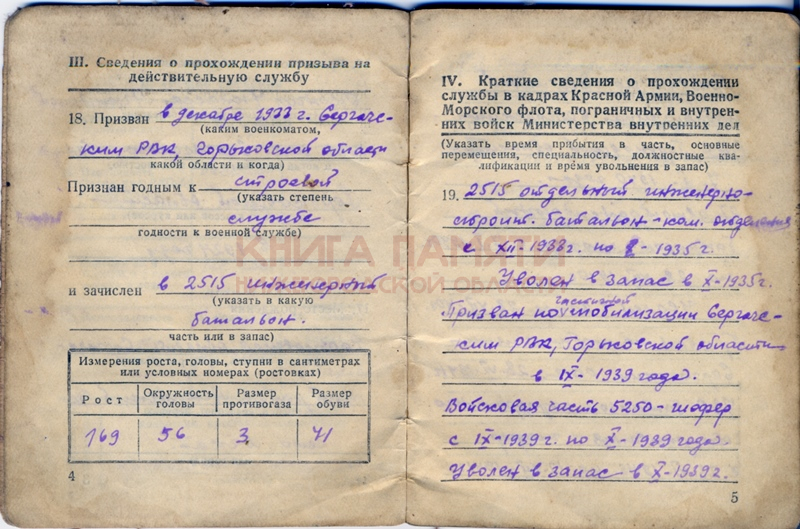 III. Сведения о прохождении призыва на
действительную службу
18. Призван в декабре 1933 г. Сергач-
(каким военкоматом,
ским РВК, Горьковской области
какой области и когда)
Признан годным к строевой
(указать степень
службе
годности к военной службе)
и зачислен в 2515 инженерный
(указать в какую
батальон.
часть или в запас)
Измерения роста, головы, ступни в сантиметрах
или условных номерах (ростовках)
Рост
Окружность
головы
Размер
противогаза
Размер
обуви
169 56 3 41
4
IV. Краткие сведения о прохождении
службы в кадрах Красной Армии, Военно-
Морского флота, пограничных и внутрен-
них войск Министерства внутренних дел
(Указать время прибытия в часть, основные
перемещения, специальность, должностные ква-
лификации и время увольнения в запас)
19. 2515 отдельный инженерно-
строит. батальон - ком. отделения
с XII-1933 г. по X-1935 г.
Уволен в запас в X-1935 г.
частичной
Призван по мобилизации Сергач-
ским РВК, Горьковской области
в IX-1939 года.
Войсковая часть 5250 - шофер
с IX-1939 г. по X-1939 года.
Уволен в запас в X-1939 г.
5
КНИГА ПАМЯТИ
НИЖЕГОРОДСКОЙ ОБЛАСТИ